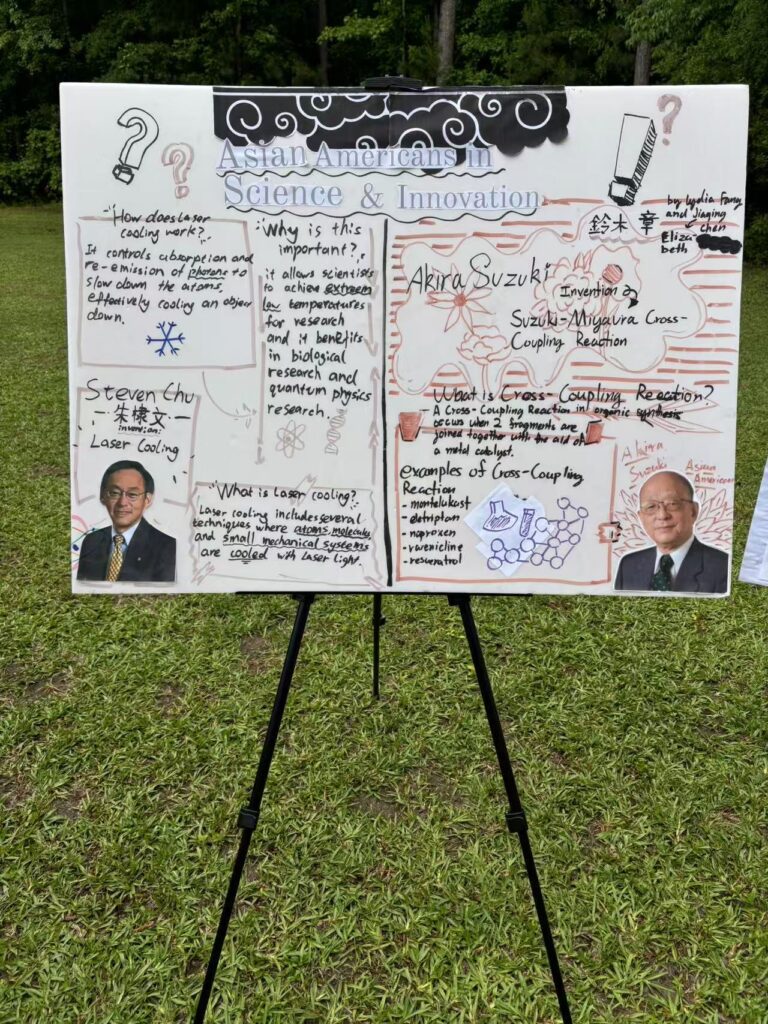 Asian Americans in
Science & Innovation
by Lydia Fang
and Jiaqing
chen
Eliza-
beth
How does laser
cooling work?
It controls absorption and
re-emission of photons to
slow down the atoms,
effectively cooling an object
down.
Why is this
important?
it allows scientists
to achieve extreem
low temperatures
for research
and it benefits
in biological
research and
quantum physics
research.
Steven Chu
朱棣文
invention:
Laser Cooling
What is Laser cooling?
Laser cooling includes several
techniques where atoms, molecules,
and small mechanical systems
are cooled with Laser light.
鈴木 章
Akira Suzuki
Invention
Suzuki-Miyaura Cross-
Coupling Reaction
What is Cross-Coupling Reaction?
- A Cross-Coupling Reaction in organic synthesis
occurs when 2 fragments are
joined together with the aid of
a metal catalyst.
examples of Cross-Coupling
Reaction
- montelukast
- eletriptan
- naproxen
- varenicline
- resveratrol
Akira
Suzuki
Asian
American